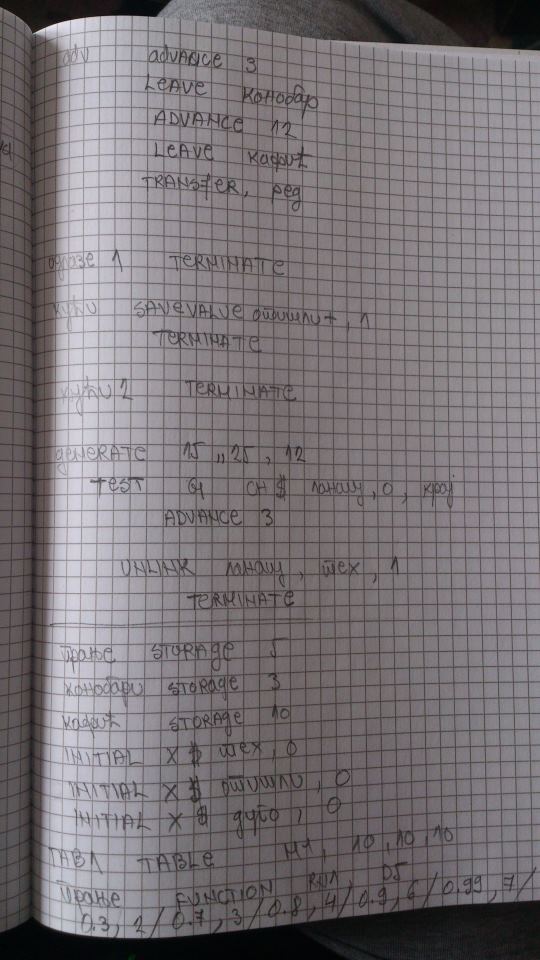 adv advance 3
LEAVE конобар
ADVANCE 12
LEAVE кафић
TRANSFER, ред
одлазе 1 TERMINATE
кући SAVEVALUE отишли+, 1
TERMINATE
кући 2 TERMINATE
generate 15,,25, 12
TEST G CH$ лапашу, 0, крај
ADVANCE 3
UNLINK лапашу, тех, 1
TERMINATE
прање STORAGE 5
конобари STORAGE 3
кафић STORAGE 10
INITIAL X$ тех, 0
INITIAL X$ отишли, 0
INITIAL X$ дуго, 0
ТАБЛ TABLE M1, 10, 10, 10
прање FUNCTION RN1, D5
0.3, 2/0.7, 3/0.8, 4/0.9, 6/0.99, 7/